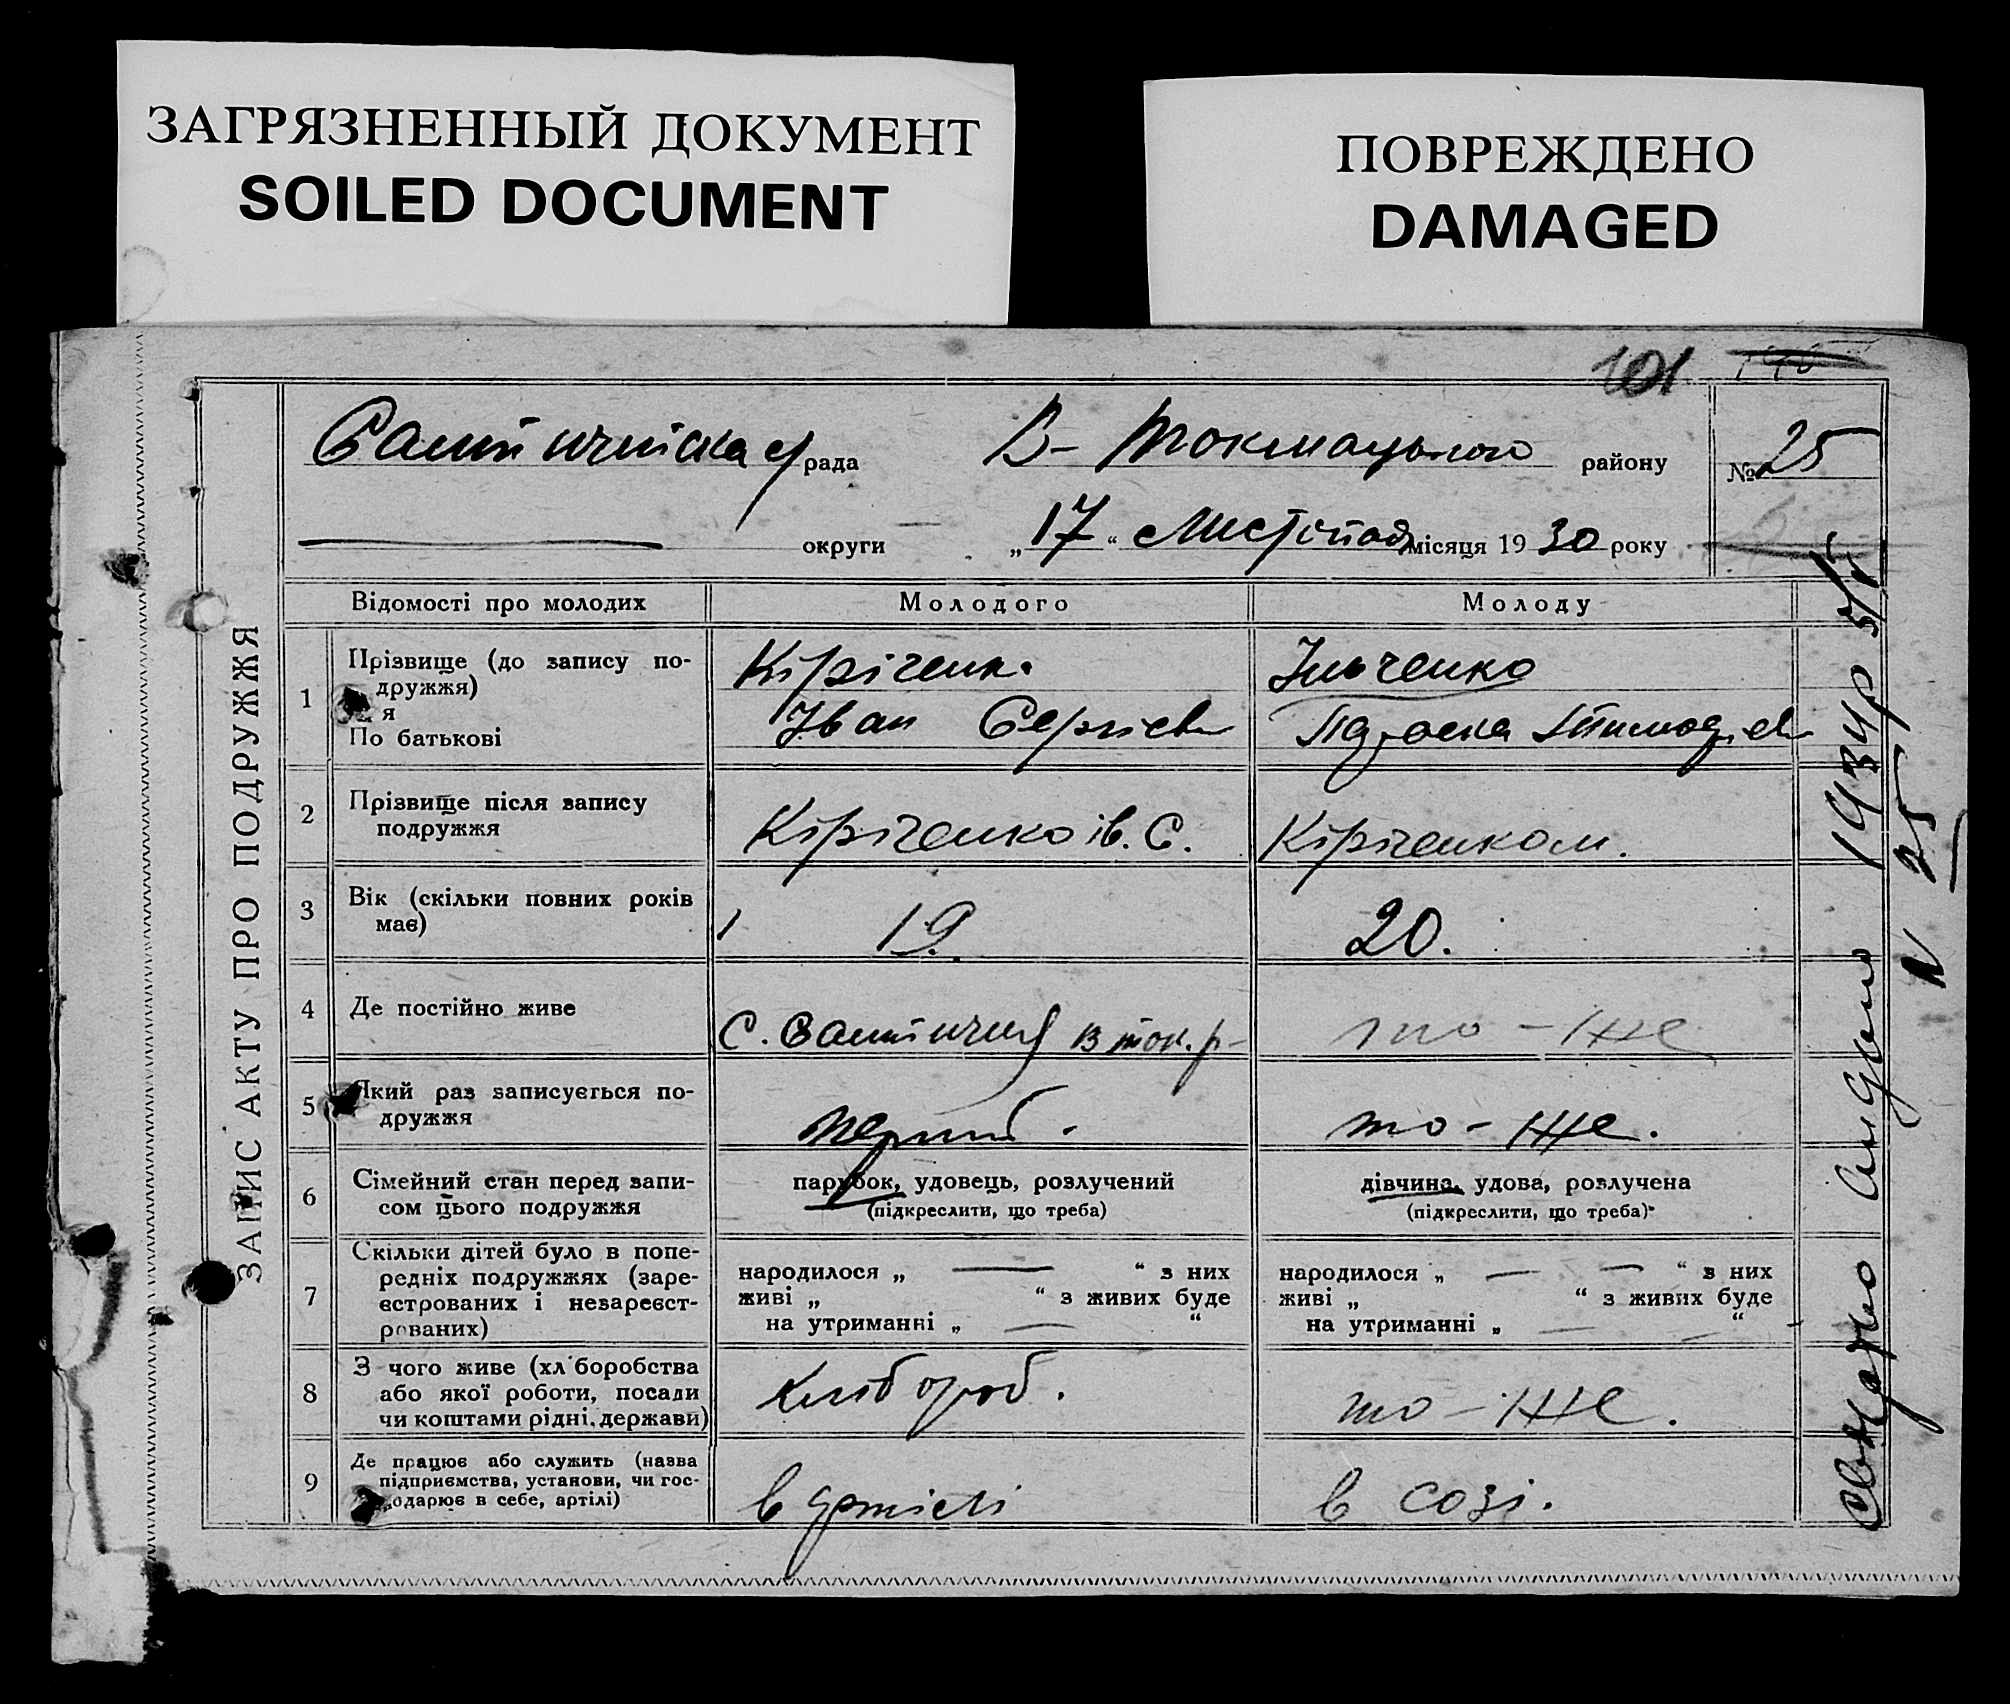 ЗАГРЯЗНЕННЫЙ ДОКУМЕНТ
SOILED DOCUMENT
ПОВРЕЖДЕНО
DAMAGED
101
рада В- Токмацького району № 25
округи „17“ Листопад місяця 1930 року
ЗАПИС АКТУ ПРО ПОДРУЖЖЯ
Відомості про молодих Молодого Молоду
1 Прізвище (до запису по-
дружжя)
я
По батькові
Кіріченко
Іван Сергієв
Ільченко
Параска Тимофієв
2 Прізвище після запису
подружжя
Кіріченко ів. С. Кіріченком.
3 Вік (скільки повних років
має)
19. 20.
4 Де постійно живе
С. В ток. р- то-же
5 Який раз записується по-
дружжя
перший. то-же.
6 Сімейний стан перед запи-
сом цього подружжя
парубок, удовець, розлучений
(підкреслити, що треба)
дівчина, удова, розлучена
(підкреслити, що треба)
7 Скільки дітей було в попе-
редніх подружжях (заре-
єстрованих і незареєст-
рованих)
народилося „ — “ з них
живі „ “ з живих буде
на утриманні „ — “
народилося „ — — “ з них
живі „ “ з живих буде
на утриманні „ — — “
8 З чого живе (хл боробства
або якої роботи, посади
чи коштами рідні, держави)
хлібороб. то-же.
9 Де працює або служить (назва
підприємства, установи, чи гос-
подарює в себе, артілі)
в артілі в созі.
Свідоцтво видано 1931р 5/V
N 25